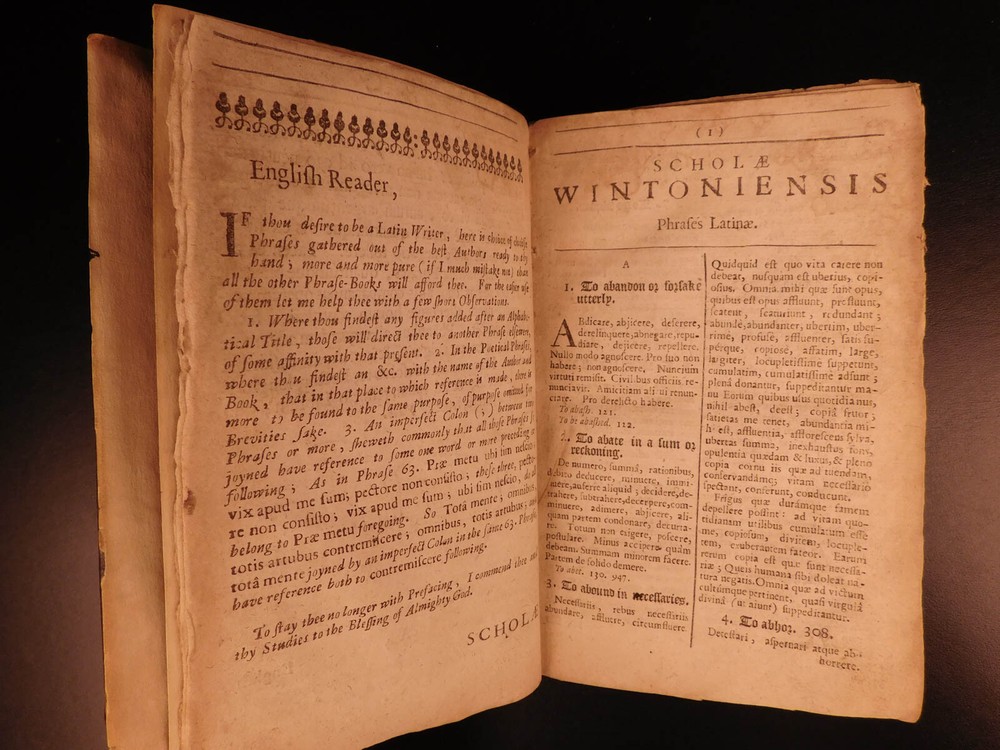 Engliſh Reader,
IF thou deſire to be a Latin Writer, here is choice of choiſe
Phraſes gathered out of the beſt Authors ready to thy
hand; more and more pure (if I much miſtake not) than
all the other Phraſe-Books will afford thee. For the eaſier uſe
of them let me help thee with a few ſhort Obſervations.
1. Where thou findeſt any figures added after an Alphabe-
tical Title, thoſe will direct thee to another Phraſe elſewhere,
of ſome affinity with that preſent. 2. In the Poetical Phraſes,
where thou findeſt an &c. with the name of the Author and
Book, that in that place to which reference is made, there is
more to be found to the ſame purpoſe, of purpoſe omitted for
Brevities ſake. 3. An imperfect Colon (;) between two
Phraſes or more, ſheweth commonly that all thoſe Phraſes ſo
joyned have reference to ſome one word or more preceding or
following; As in Phraſe 63. Præ metu ubi ſim neſcio;
vix apud me ſum; pectore non conſiſto; theſe three, pecto-
re non conſiſto; vix apud me ſum; ubi ſim neſcio, do all
belong to Præ metu foregoing. So Totâ mente; omnibus,
totis artubus contremiſcere; omnibus, totis artubus;
totâ mente joyned by an imperfect Colon in the ſame 63. Phraſe
have reference both to contremiſcere following.
To ſtay thee no longer with Prefacing, I commend thee and
thy Studies to the Bleſſing of Almighty God.
SCHOLÆ
(1)
SCHOLÆ
WINTONIENSIS
Phraſes Latinæ.
A
1. To abandon or forſake
utterly.
ABdicare, abjicere, deſerere,
derelinquere, abnegare, repu-
diare, dejicere, repellere.
Nullo modo agnoſcere. Pro ſuo non
habere; non agnoſcere. Nuncium
virtuti remiſit. Civilibus officiis re-
nunciare. Amicitiam alicui renun-
ciare. Pro derelicto habere.
To abaſh. 121.
To be abaſhed. 112.
2. To abate in a ſum or
reckoning.
De numero, ſummâ, rationibus,
debito deducere, minuere, immi-
nuere, auferre aliquid; decidere, de-
trahere, ſubtrahere, decerpere, com-
minuere, adimere, abjicere, ali-
quam partem condonare, decurta-
re. Totum non exigere, poſcere,
poſtulare. Minus accipere quàm
debeam. Summam minorem facere.
Partem de ſolido demere.
To abett. 130. 947.
3. To abound in neceſſaries.
Neceſſariis, rebus neceſſariis
abundare, affluere, circumfluere
Quidquid eſt quo vita carere non
debeat, nuſquam eſt uberius, copi-
oſius. Omnia mihi quæ ſunt opus,
quibus eſt opus affluunt, profluunt,
ſcatent, ſcaturiunt, redundant;
abundè, abundanter, ubertim, uber-
rimè, profuſè, affluenter, ſatis ſu-
pérque, copiosè, affatim, large,
largiter, locupletiſſimè ſuppetunt,
cumulatim, cumulatiſſimè adſunt;
plenâ donantur, ſuppeditantur ma-
nu Eorum quibus uſus quotidianus,
nihil abeſt, deeſt; copiâ fruor;
ſatietas me tenet, abundantia mi-
hi eſt, affluentia, affloreſcens ſylva,
ubertas ſumma, inexhauſtus fons,
opulentia quædam & luxus, & pleno
copia cornu iis quæ ad tuendam,
conſervandámq; vitam neceſſario
ſpectant, conferunt, conducunt.
Frigus quæ durámque famem
depellere poſſint: ad vitam quo-
tidianam utilibus cumulatum eſſe
me, copioſum, divitem, locuple-
tem, exuberantem fateor. Earum
rerum copia eſt quæ ſunt neceſſa-
riæ; Quen humana ſibi doleat na-
tura negatis. Omnia quæ ad victum
cultúmque pertinent, quaſi virgulâ
divinâ (ut aiunt) ſuppeditantur.
4. To abhor. 308.
Deteſtari, aſpernari atque ab-
horrere.